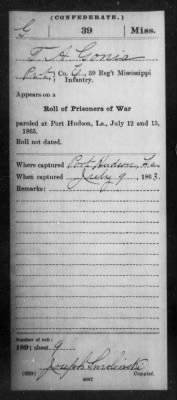 (CONFEDERATE.)
G 39 Miss.
T. A. Gonia
Pvt., Co. G, 39 Reg't Mississippi
Infantry.
Appears on a
Roll of Prisoners of War
paroled at Port Hudson, La., July 12 and 13,
1863.
Roll not dated.
Where captured Port Hudson, La.
When captured July 9, 1863.
Remarks:
Number of roll:
189; sheet 9
(639) Joseph
Copyist.